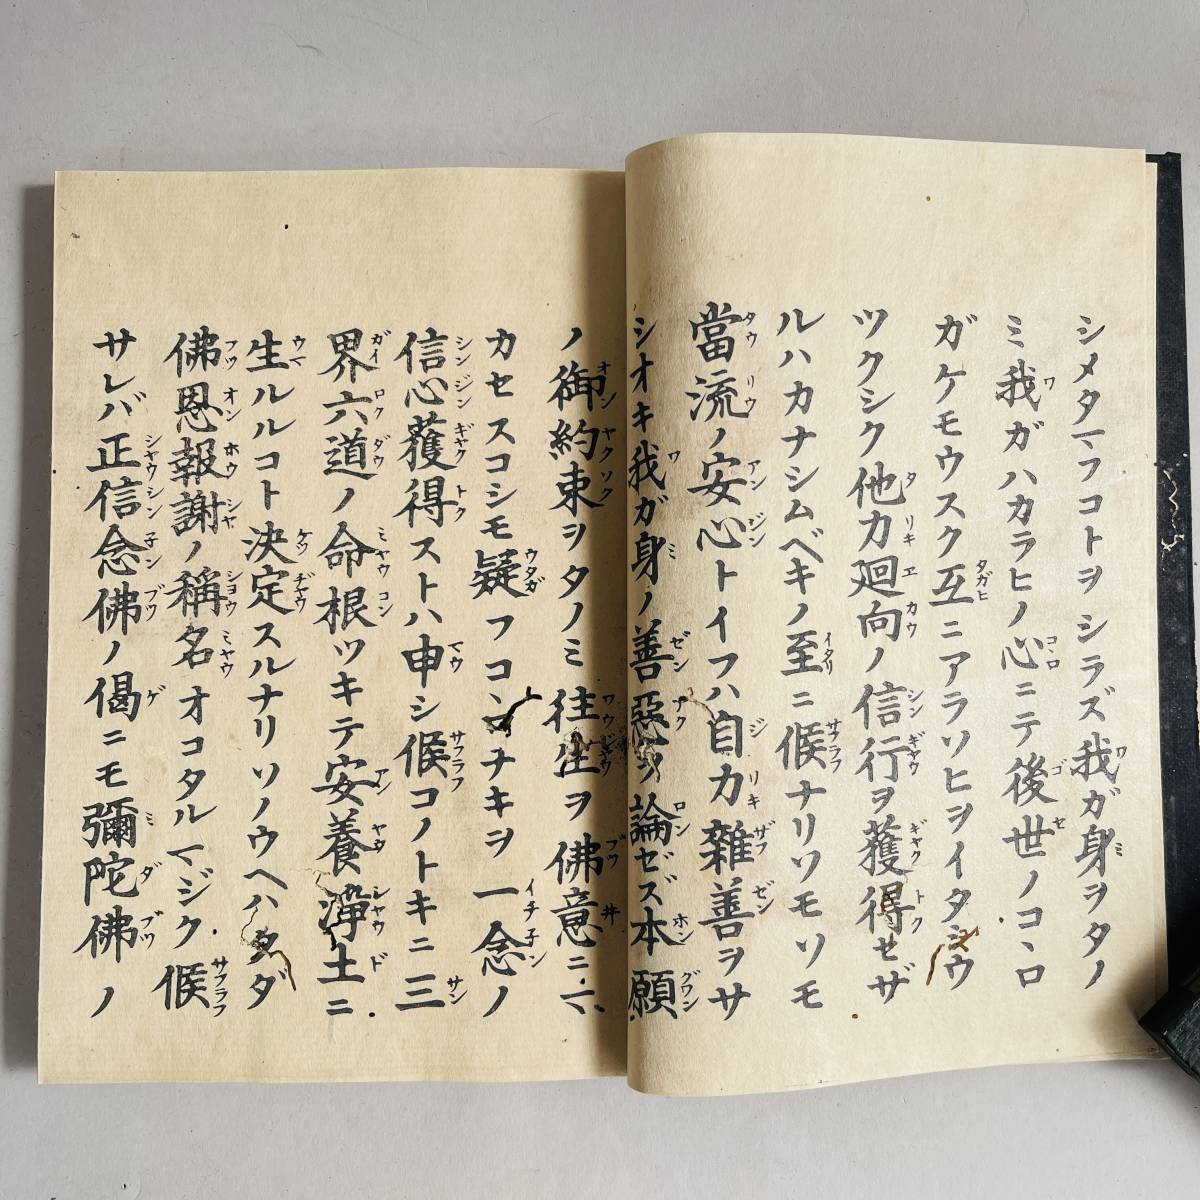 シメタマフコトヲシラズ我ガ身ヲタノ
ミ我ガハカラヒノ心ニテ後世ノコヽロ
ガケモウスク互ニアラソヒヲイタシウ
ツクシク他力廻向ノ信行ヲ獲得セザ
ルハカナシムベキノ至ニ候ナリソモソモ
當流ノ安心トイフハ自力雜善ヲサ
シオキ我ガ身ノ善惡ヲ論ゼズ本願
ノ御約束ヲタノミ往生ヲ佛意ニマ
カセスコシモ疑フコヽロナキヲ一念ノ
信心獲得ストハ申シ候コノトキニ三
界六道ノ命根ツキテ安養淨土ニ
生ルルコト決定スルナリソノウヘハタダ
佛恩報謝ノ稱名オコタルマジク候
サレバ正信念佛ノ偈ニモ彌陀佛ノ